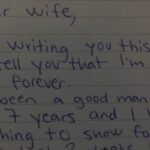 r Wife,
writing you this
tell you that I'm
forever.
been a good man
7 years and I h
hing to show for